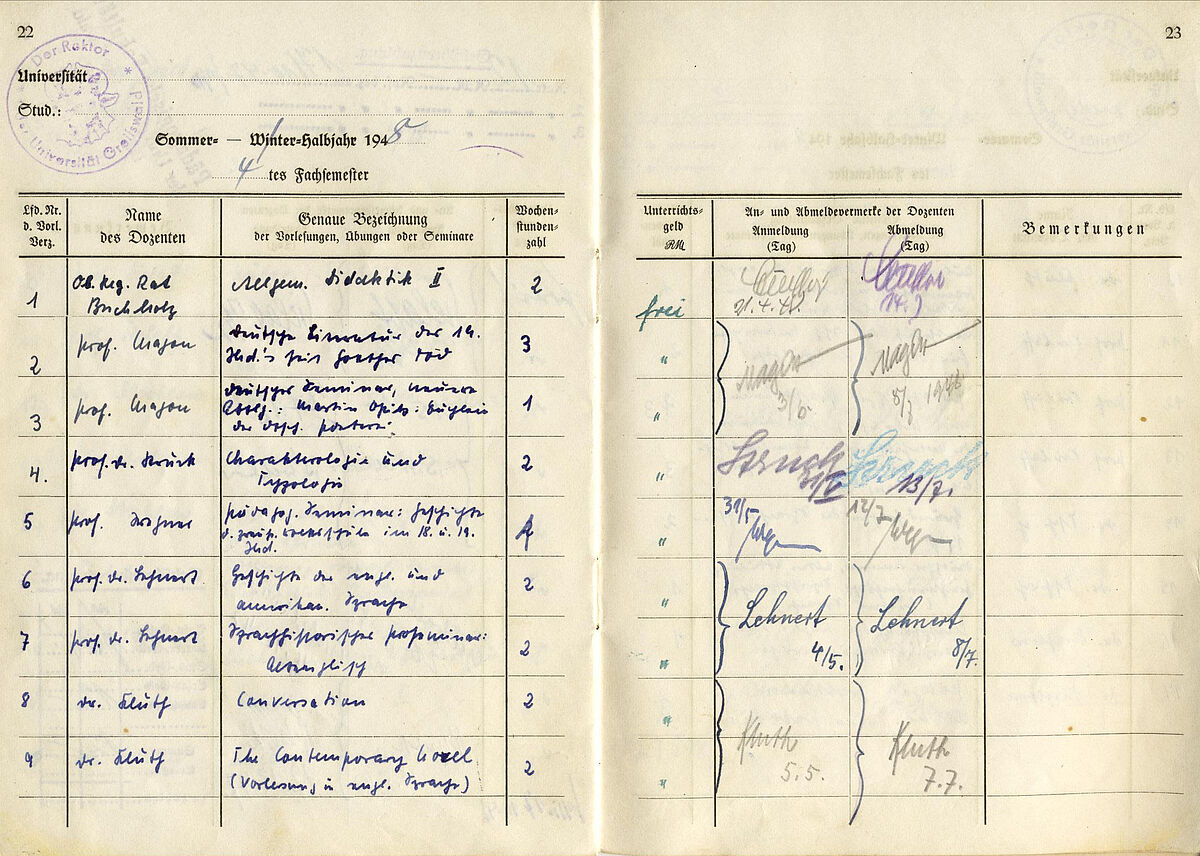 22
Der Rektor
der Universität Greifswald
Universität
Stud.:
Sommer- — Winter-Halbjahr 1948
4 tes Fachsemester
Lfd. Nr. d. Vorl. Verz.
Name des Dozenten
Genaue Bezeichnung der Vorlesungen, Übungen oder Seminare
Wochen-stunden-zahl
1 Ob. Reg. Rat Allgem. Didaktik II 2
Buchholz
2 prof. Magon deutsche Literatur des 19. 3
Jhd.'s seit Goethes Tod
3 prof. Magon deutsches Seminar, neuere 1
Abtlg.: Martin Opitz:
der dtsch.
4. prof. dr. Struck Charakterologie und 2
Typologie
5 prof. pädagog. Seminar: Geschichte
d. preuß. Volksschule im 18. u. 19.
Jhd.
6 prof. dr. Lehnert Geschichte der engl. und 2
amerikan. Sprache
7 prof. dr. Lehnert Sprachhistorisches proseminar: 2
Altenglisch
8 dr. Kluth Conversation 2
9 dr. Kluth The Contemporary Novel 2
(Vorlesung in engl. Sprache)
23
Unterrichts-geld RM
An- und Abmeldevermerke der Dozenten
Anmeldung (Tag)
Abmeldung (Tag)
Bemerkungen
frei 21.4.48
"
Magon Magon
3/5 8/7 1948
"
" Struck Struck
13/7.
31/5 12/7
"
"
Lehnert Lehnert
4/5. 8/7.
"
"
Kluth Kluth
5.5. 7.7.
"